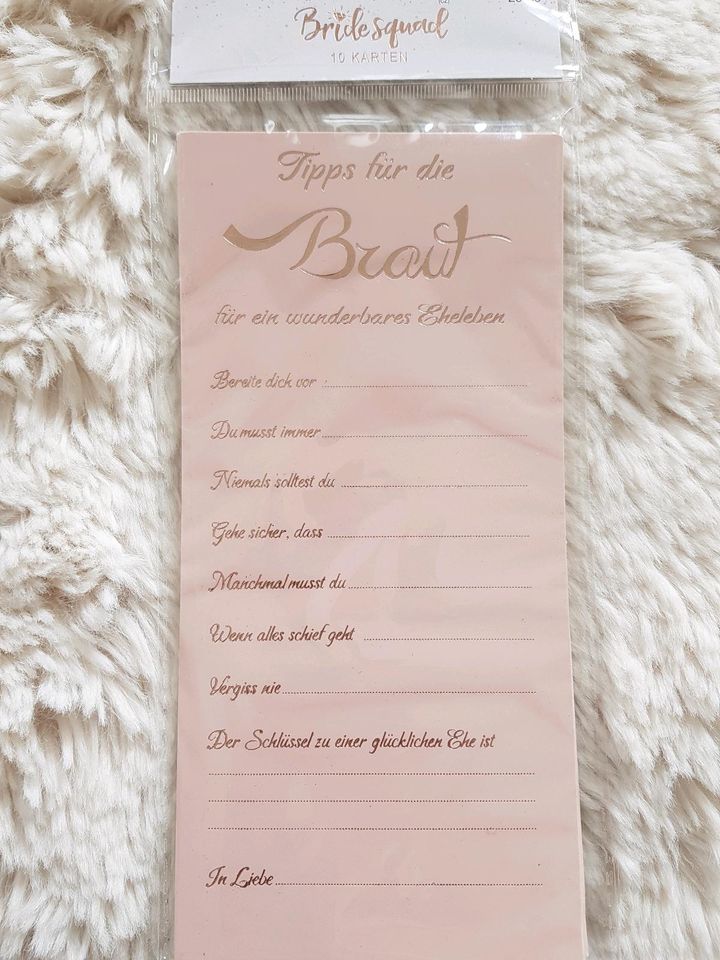 Bridesquad
10 KARTEN
Tipps für die
Braut
für ein wunderbares Eheleben
Bereite dich vor :
Du musst immer
Niemals solltest du
Gehe sicher, dass
Manchmal musst du
Wenn alles schief geht
Vergiss nie
Der Schlüssel zu einer glücklichen Ehe ist
In Liebe